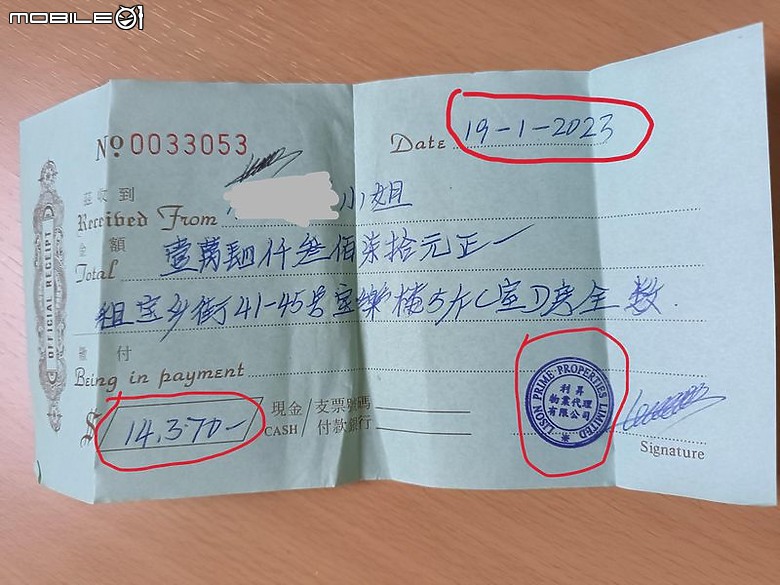 MOBILE01
No 0033053
Date 19-1-2023
茲收到
Received From 小姐
金額
Total 壹萬肆仟叁佰柒拾元正
租宝乡街41-45号宝樂楼5/F C室D房全数.
繳付
Being in payment
$ 14,370- 現金 CASH / 支票號碼 付款銀行
OFFICIAL RECEIPT
LISON PRIME PROPERTIES LIMITED
利昇
物業代理
有限公司
Signature